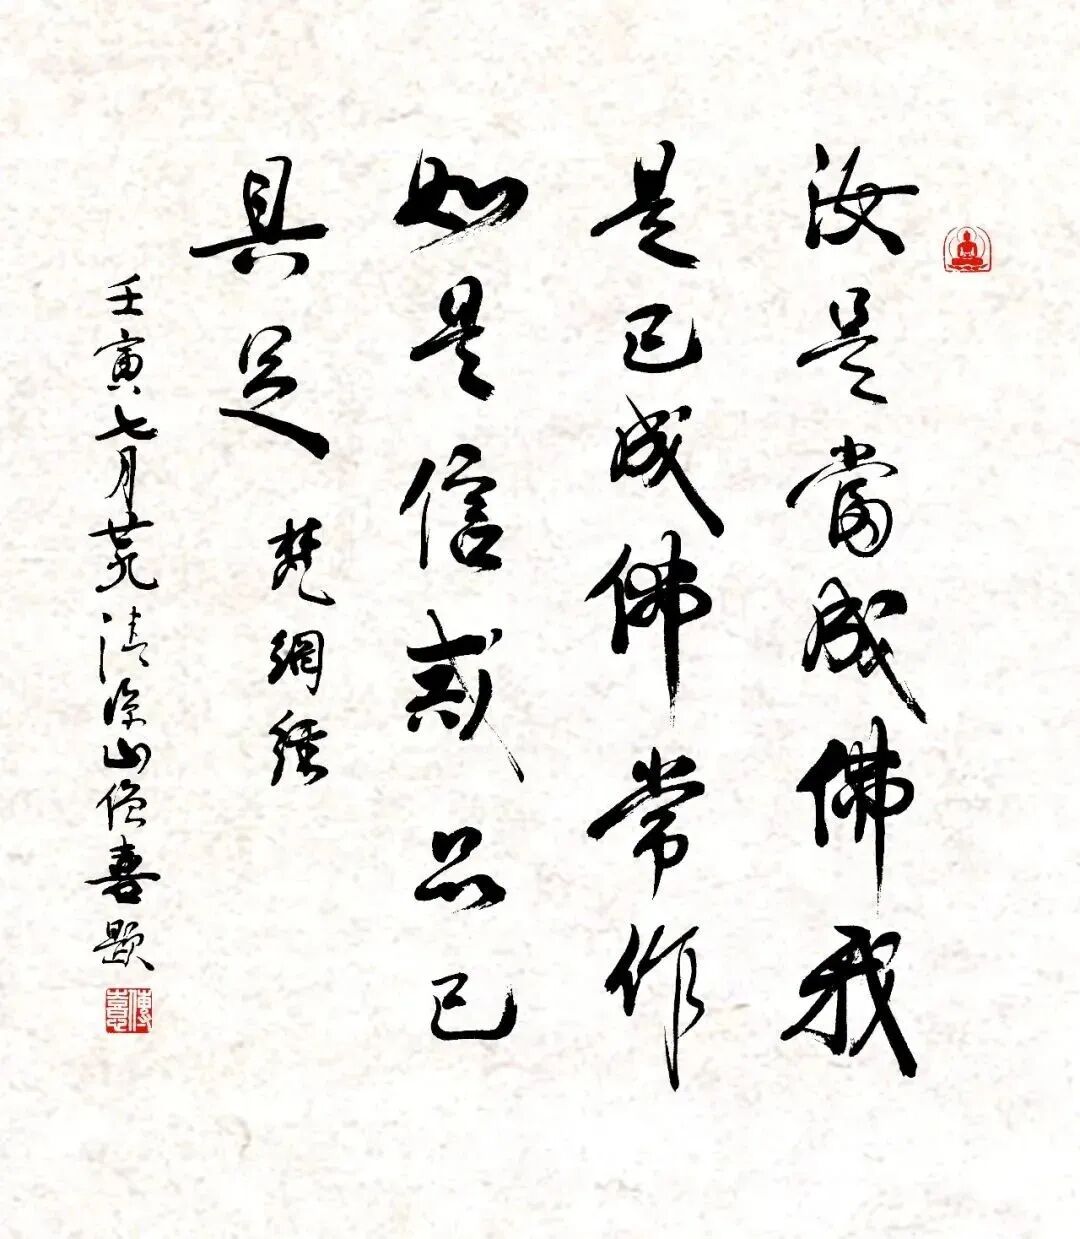 汝是當成佛我
是已成佛常作
如是信戒品已
具足 梵網經
壬寅七月荒清涼山僧喜題